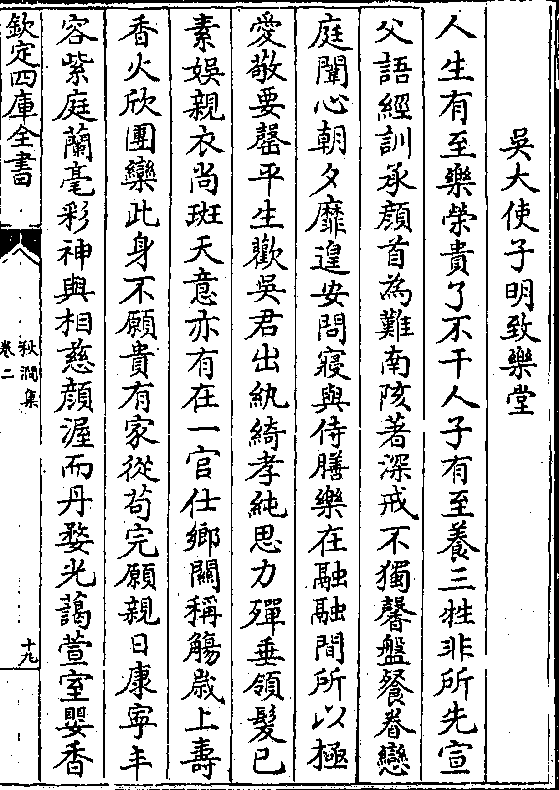 吳大使子明致樂堂
人生有至樂榮貴了不干人子有至養三牲非所先宣
父語經訓承顔首為難南陔著深戒不獨馨盤餐眷戀
庭闈心朝夕靡遑安問寢與侍膳樂在融融間所以極
愛敬要罄平生歡吳君出紈綺孝純思力殫垂領髮已
素娛親衣尚斑天意亦有在一官仕鄉關稱觴歲上壽
香火欣團欒此身不願貴有家從苟完願親日康寧年
容紫庭蘭毫彩神與相慈顔渥而丹婺光藹萱室嬰香
欽定四庫全書
秋澗集
卷二
十九